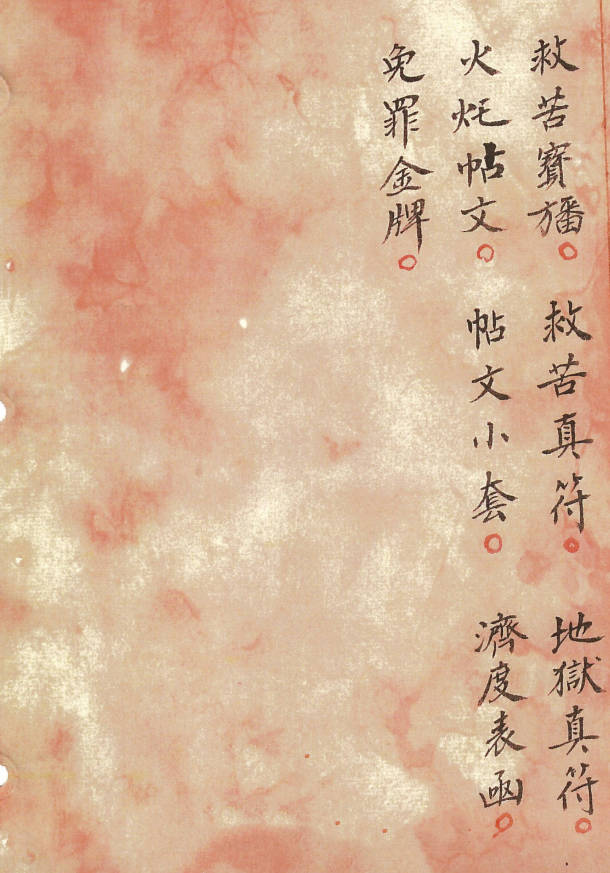 救苦寶旙。救苦真符。地獄真符。
火炬帖文。帖文小套。濟度表函。
免罪金牌。